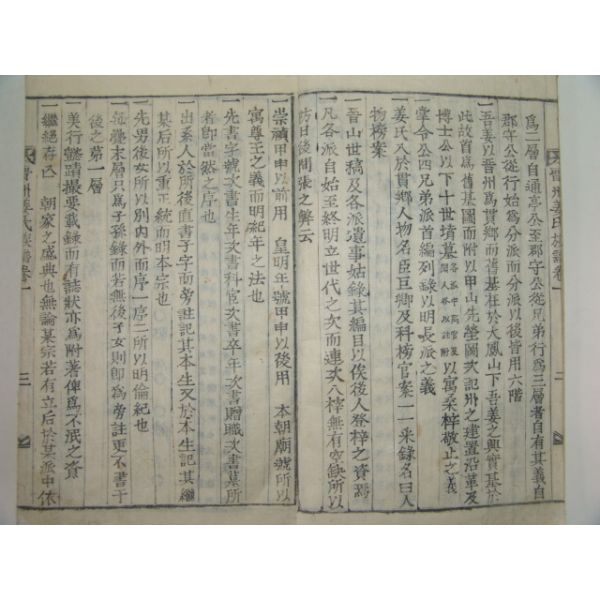 爲二層自通亭公至郡守公從兄弟行爲三層者自有其義自
郡守公從行始爲分派而分派以後皆用六階
一吾姜以晋州爲貫鄉而舊基在於大鳳山下吾姜之興實基於
此故首爲舊基圖而附以甲山先塋圖次記州之建置沿革及
博士公以下十世墳墓以寓桑梓敬止之義
掌令公四兄弟派首編列錄以明長派之義
姜氏入於貫鄉人物名臣巨卿及科榜官案一一采錄名曰人
物榜案
一晉山世稿及各派遺事姑錄其編目以俟後人登梓之資焉
一凡各派自始至終明立世代之次而連次入梓無有空缺所以
防日後間張之弊云
一崇禎甲申以前用 皇明年號甲申以後用 本朝廟號所以
寓尊王之義而明紀年之法也
一先書字號次書生年次書科官次書卒年次書贈職次書墓所
者卽當然之序也
一出系人於所後直書子字而旁註記其本生又於本生記其繼
某后所以重正統而明本宗也
一先男後女所以別內外而序一序二所以明倫紀也
一每疊末層只爲子孫錄而若無後子女則卽爲旁註更不書于
後之第一層
一美行懿蹟撮要載錄而有誌狀亦爲附著俾爲不泯之資
一繼絕存亡 朝家之盛典也無論某宗若有立后於某派中依
晋州姜氏族譜卷一
二
晋州姜氏族譜卷一
三